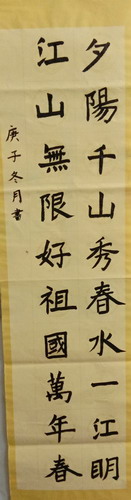 夕陽千山秀春水一江明
江山無限好祖國萬年春
庚子冬月書